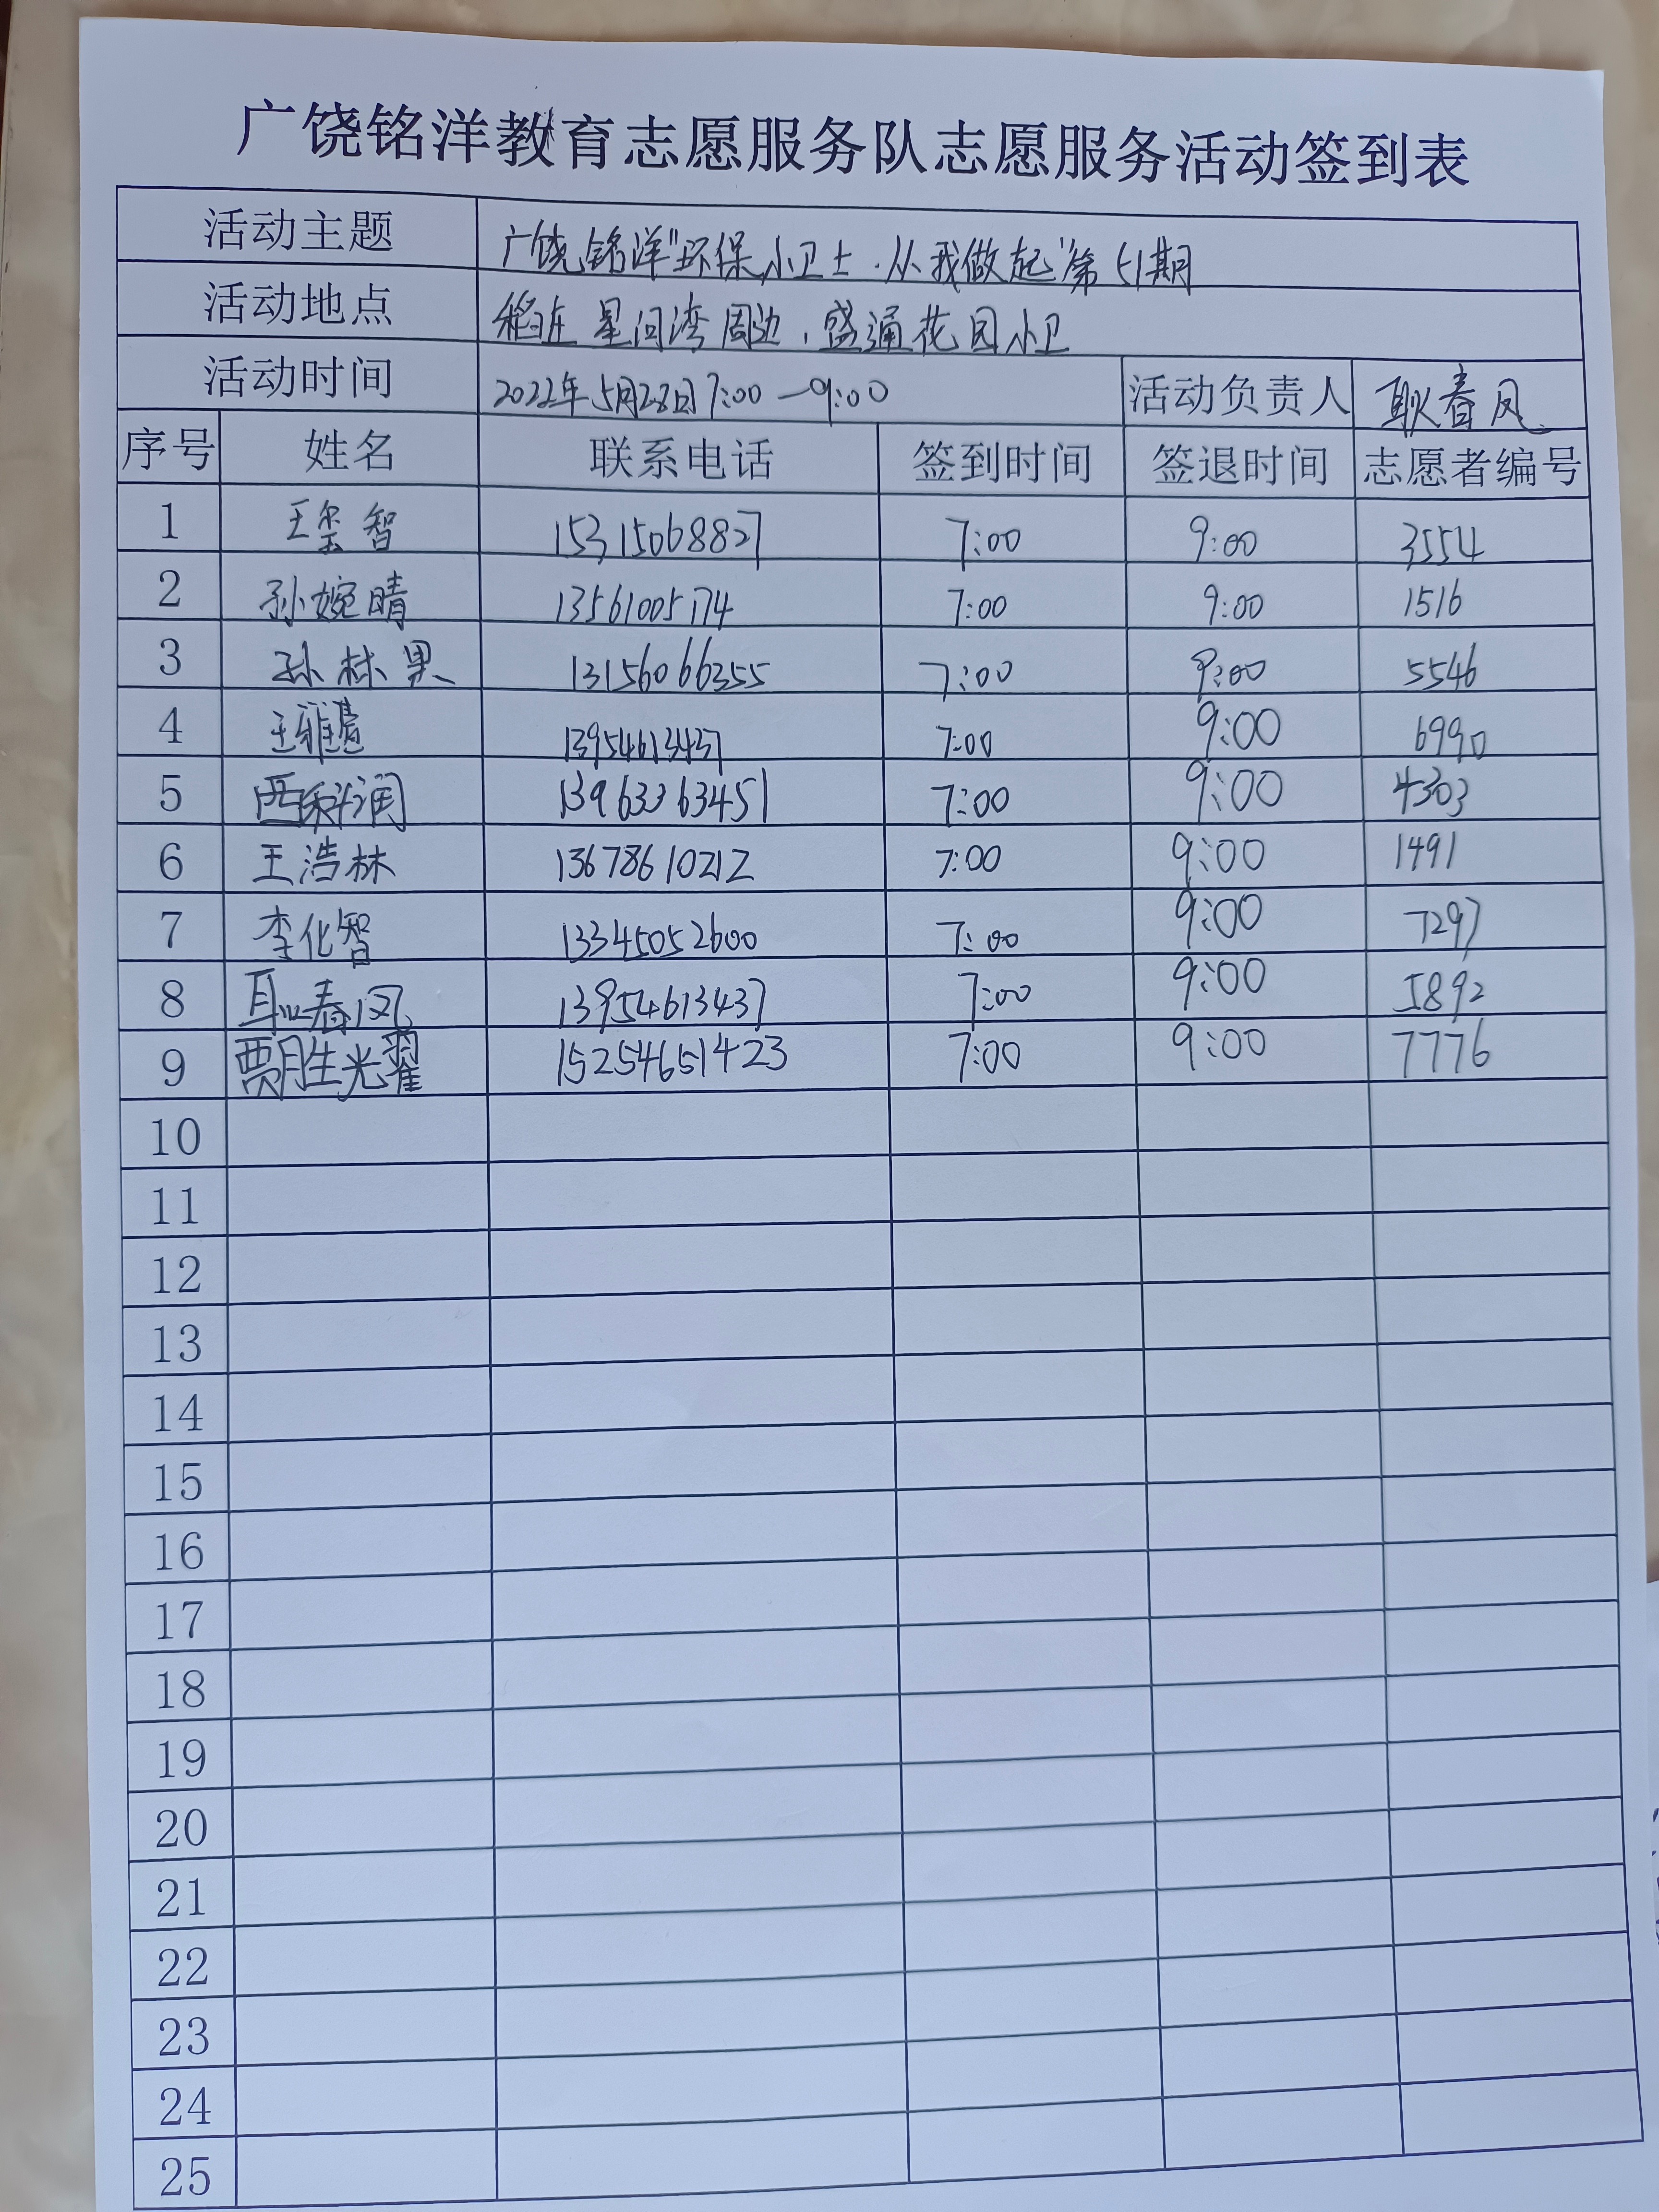 广饶铭洋教育志愿服务队志愿服务活动签到表
活动主题 广饶铭洋"环保小卫士.从我做起"第51期
活动地点 稻庄星河湾周边,盛通花园小卫
活动时间 2022年5月28日7:00—9:00 活动负责人 耿春凤
序号 姓名 联系电话 签到时间 签退时间 志愿者编号
1 王玺智 15315068827 7:00 9:00 3554
2 孙婉晴 13561005174 7:00 9:00 1516
3 孙林果 13156066355 7:00 9:00 5546
4 王雅慧 13954613437 7:00 9:00 6990
5 西 润 13963363451 7:00 9:00 4303
6 王浩林 13678610212 7:00 9:00 1491
7 李化智 13345052600 7:00 9:00 7297
8 耿春凤 13954613437 7:00 9:00 5892
9 贾胜光耀 15254651423 7:00 9:00 7776
10
11
12
13
14
15
16
17
18
19
20
21
22
23
24
25